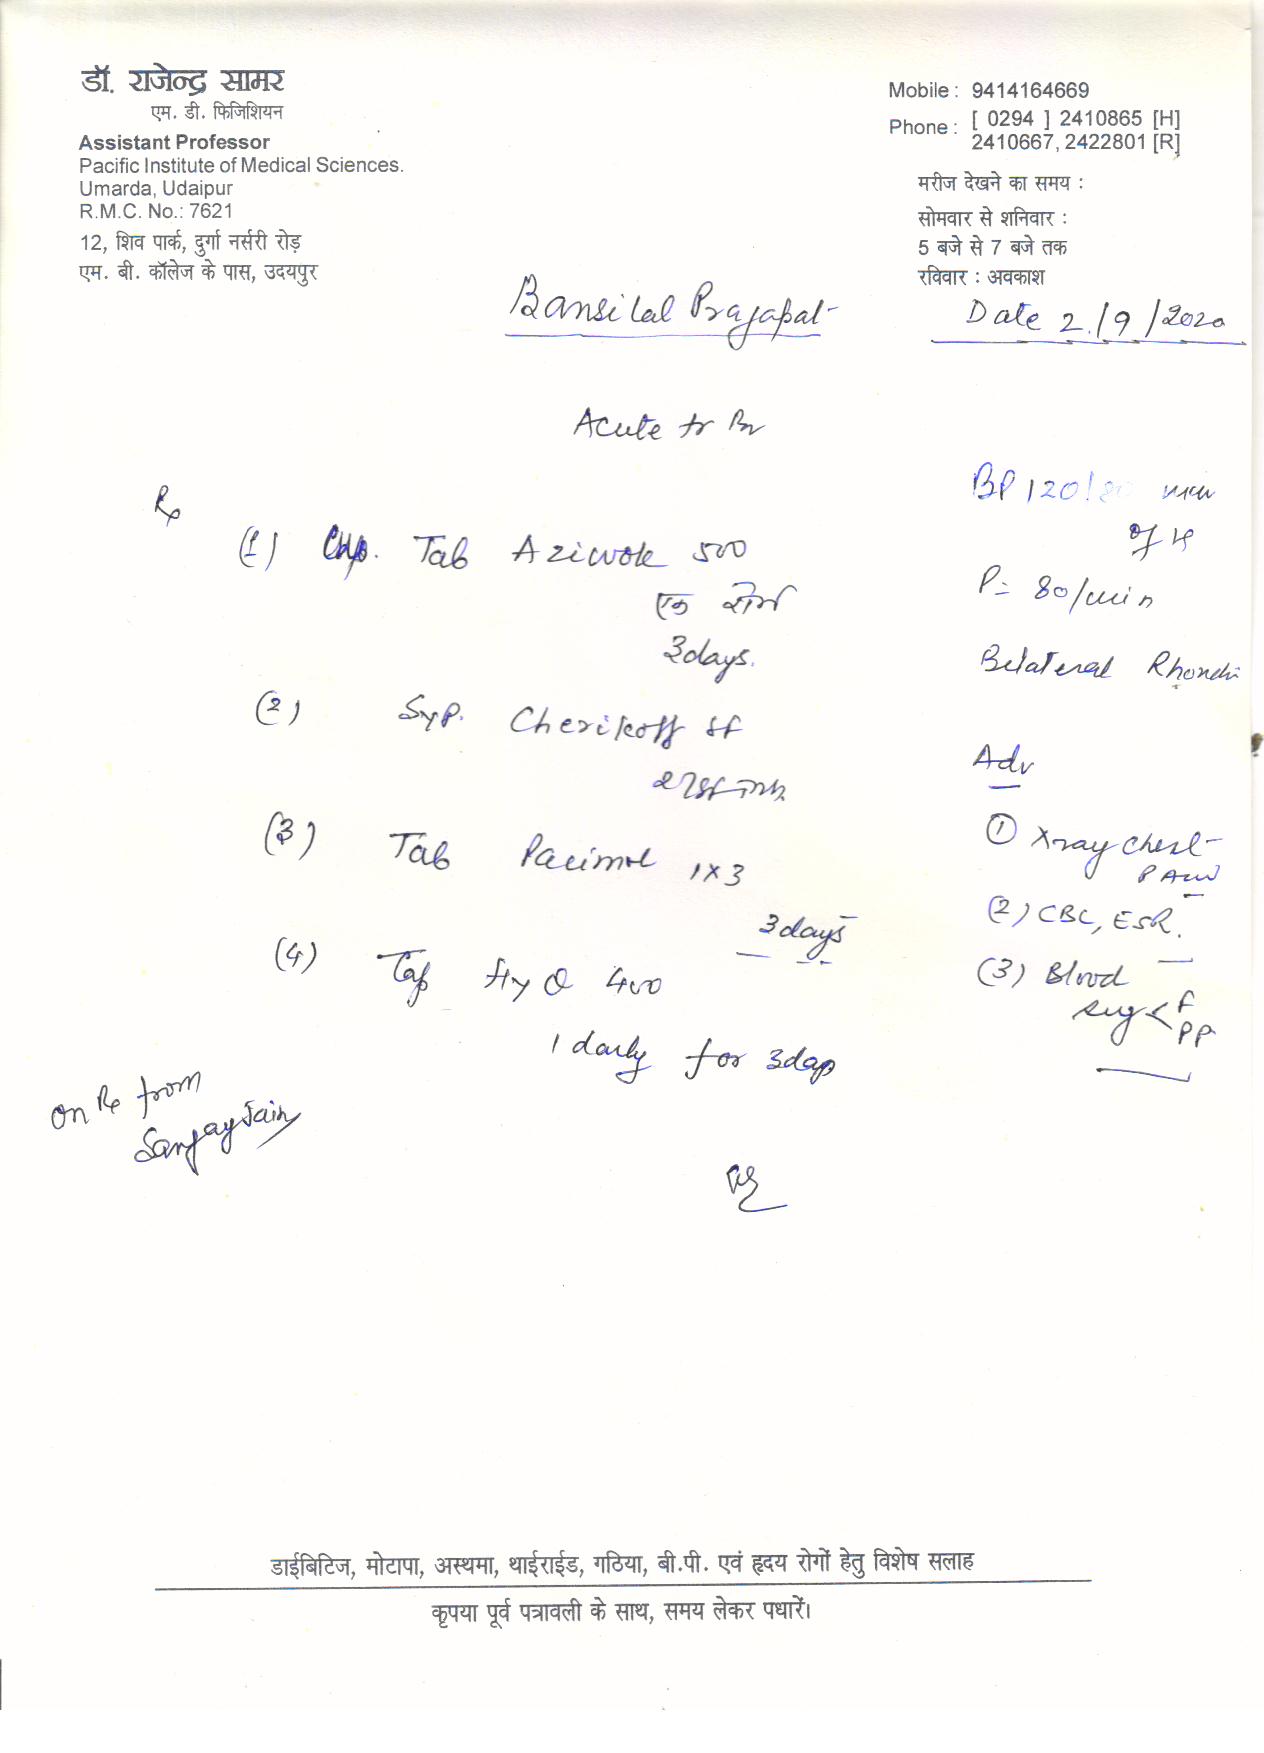 डॉ. राजेन्द्र सामर
एम. डी. फिजिशियन
Assistant Professor
Pacific Institute of Medical Sciences.
Umarda, Udaipur
R.M.C. No.: 7621
12, शिव पार्क, दुर्गा नर्सरी रोड़
एम. बी. कॉलेज के पास, उदयपुर
Mobile : 9414164669
Phone : [ 0294 ] 2410865 [H]
2410667, 2422801 [R]
मरीज देखने का समय :
सोमवार से शनिवार :
5 बजे से 7 बजे तक
रविवार : अवकाश
Bansilal Prajapat
Date 2/9/2020
Acute
Rx
(1) Tab Aziwok 500
एक रोज
3days.
(2) Syp. Cherikoff
(3) Tab Pacimol 1x3
3days
(4) Tab 400
1 daily for 3days
BP 120/80 mm
of
P= 80/min
Bilateral Rhonchi
Adv
① Xray Chest
PA
(2) CBC, ESR.
(3) Blood
sug < F
PP
On Rx from
Sanjay Jain
डाईबिटिज, मोटापा, अस्थमा, थाईराईड, गठिया, बी.पी. एवं हृदय रोगों हेतु विशेष सलाह
कृपया पूर्व पत्रावली के साथ, समय लेकर पधारें।